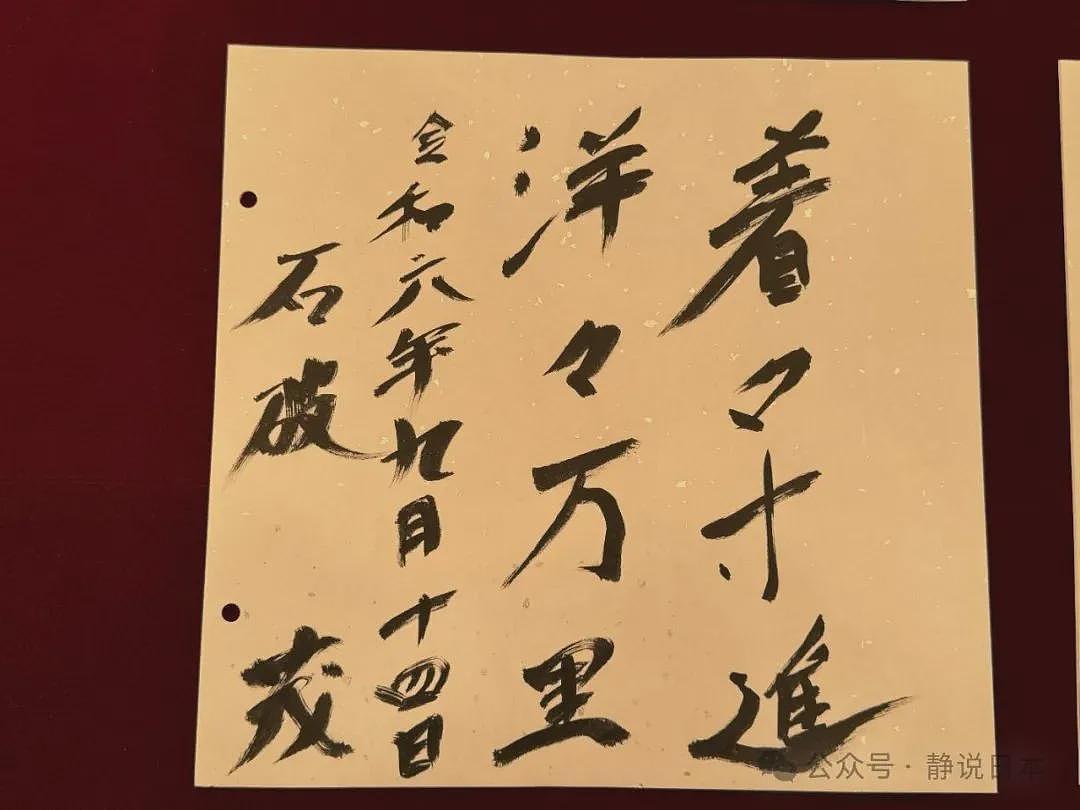 着々寸進
洋々万里
令和六年九月十四日
石破 茂
公众号 · 静说日本